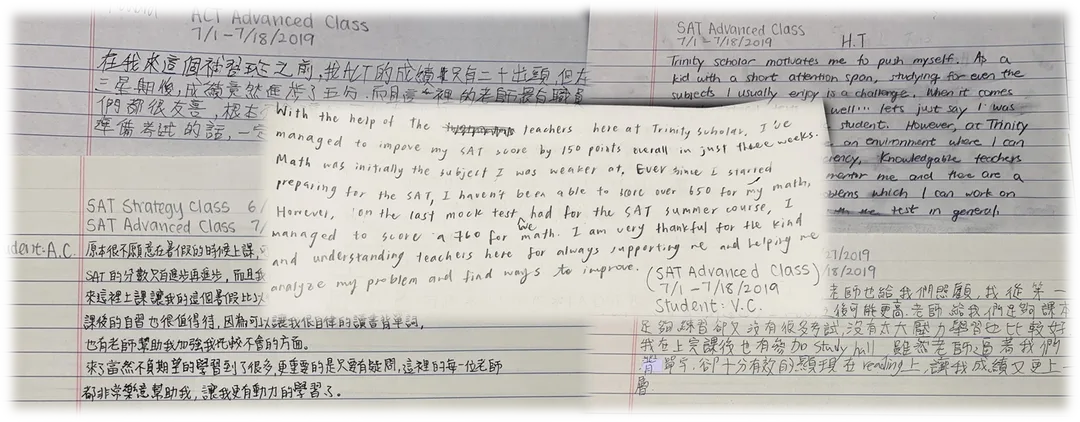 ACT Advanced Class
7/1-7/18/2019
在我來這個補習班之前,我ACT的成績只有二十出頭,但在
三星期後,成績竟然進步了五分,而且這裡的老師跟職員
們都很友善,根本
準備考試的話,一定
SAT Advanced Class
7/1-7/18/2019 H.T
Trinity scholar motivates me to push myself. As a
kid with a short attention span, studying for even the
subjects I usually enjoy is a challenge. When it comes
well... lets just say I was
student. However, at Trinity
an environment where I can
Knowledgable teachers
mentor me and there are a
which I can work on
test in general.
With the help of the teachers here at Trinity scholar, I've
managed to impove my SAT score by 150 points overall in just three weeks.
Math was initially the subject I was weaker at. Ever since I started
preparing for the SAT, I haven't been able to score over 650 for my math,
However, on the last mock test we had for the SAT summer course, I
managed to score a 760 for math. I am very thankful for the kind
and understanding teachers here for always supporting me and helping me
analyze my problem and find ways to improve.
(SAT Advanced Class)
7/1-7/18/2019
Student: V.C.
SAT Strategy Class 6/
SAT Advanced Class 7/
udent: A.C.
原本很不願意在暑假的時候上課,
SAT的分數又有進步再進步,而且我
來這裡上課讓我的這個暑假比以
課後的自習也很值得待,因為可以讓我很自律的讀書背單詞,
也有老師幫助我加強我比較不會的方面。
來了當然不負期望的學習到了很多,更重要的是只要有疑問,這裡的每一位老師
都非常樂意幫助我,讓我更有動力的學習了。
27/2019
18/2019
老師也給我們照顧,我從第一
後可能更高.老師給我們足夠課本
足夠練習卻又沒有很多考試,沒有太大壓力學習也比較好
我在上完課後也有參加study hall 雖然老師逼著我們
背單字,卻十分有效的顯現在reading上,讓我成績又更上一
層